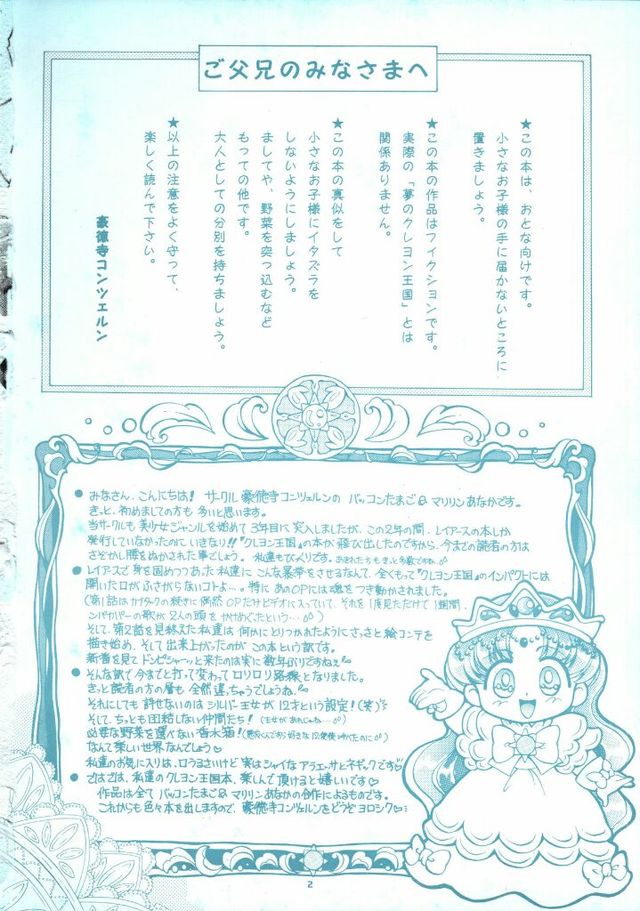 ご父兄のみなさまへ
★この本は、おとな向けです。
小さなお子様の手に届かないところに
置きましょう。
★この本の作品はフィクションです。
実際の「夢のクレヨン王国」とは
関係ありません。
★この本の真似をして
小さなお子様にイタズラを
しないようにしましょう。
ましてや、野菜を突っ込むなど
もっての他です。
大人としての分別を持ちましょう。
★以上の注意をよく守って、
楽しく読んで下さい。
豪徳寺コンツェルン
●みなさん、こんにちは! サークル豪徳寺コンツェルンの バッコンたまご&マリリンあなかです。
きっと、初めましての方も 多いと思います。
当サークルも美少女ジャンルを始めて3年目に突入しましたが、この2年の間、レイアースの本しか
発行していなかったのにいきなり!!『クレヨン王国』の本が飛び出したのですから、今までの読者の方は
さぞかし腰をぬかされた事でしょう。私達もびっくりです。
●レイアースで身を固めつつあった私達に こんな暴挙をさせるなんて、全くもって『クレヨン王国』のインパクトには
開いた口がふさがらないコトよ…。特に あのOPには魂をつき動かされました。
そして、第2話を見終えた私達は 何かにとりつかれたように さっさと絵コンテを
描き始め、そして出来上がったのが この本という訳です。
新番を見て ドンピシャーッと来たのは実に数年ぶりですねぇ
●そんな訳で 今までと打って変わって ロリロリ路線となりました。
きっと読者の方の層も 全然違っちゃうでしょうね。
それにしても 許せないのは シルバー王女が 12才という設定!(笑)
そして、ちっとも団結しない仲間たち!
必要な野菜を選べない香水箱!
なんて楽しい世界なんでしょう
私達のお気に入りは、口うるさいけど 実はシャイな アラエッサとネギックです♡
●ではでは、私達のクレヨン王国本、楽しんで頂けると嬉しいです♡
作品は全て バッコンたまご&マリリンあなかの合作によるものです。
これからも色々本を出しますので、豪徳寺コンツェルンをどうぞヨロシク♡
2